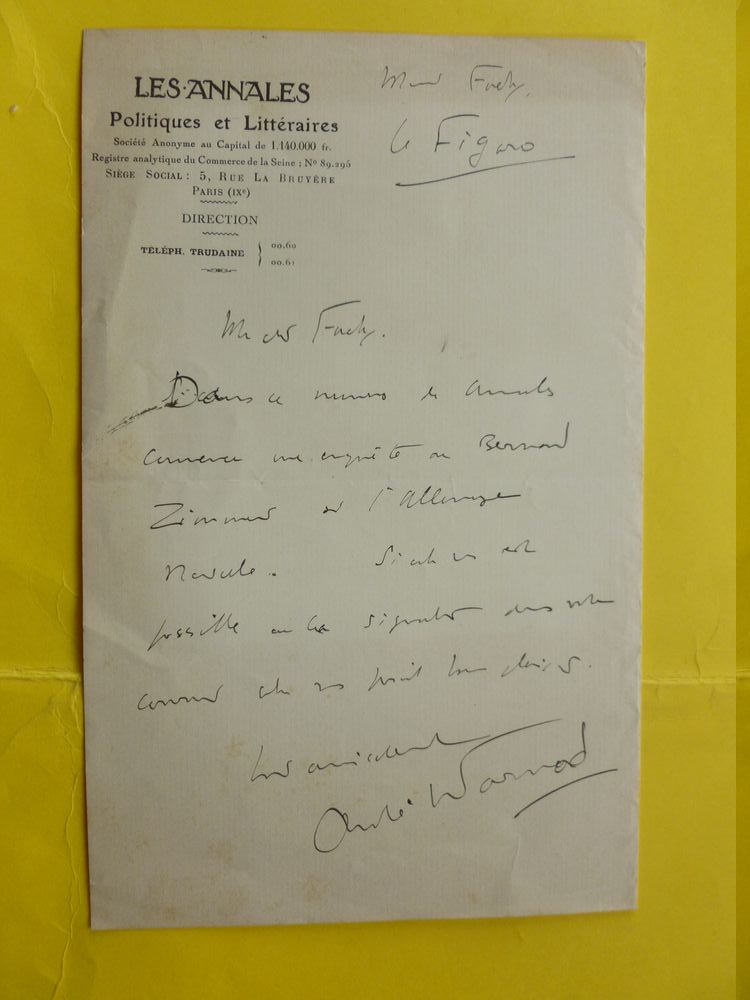 LES·ANNALES
Politiques et Littéraires
Société Anonyme au Capital de 1.140.000 fr.
Registre analytique du Commerce de la Seine : Nº 89.295
SIÈGE SOCIAL : 5, RUE LA BRUYÈRE
PARIS (IXᵉ)
DIRECTION
TÉLÉPH. TRUDAINE } 00.60
00.61
Le Figaro
Dans ce numero des Annales
commence une enquête de Bernard
Zimmer sur l'Allemagne
Nouvelle. Si cela vous est
possible de la signaler dans votre
courrier cela nous ferait bien plaisir.
Bien amicalement
André Warnod